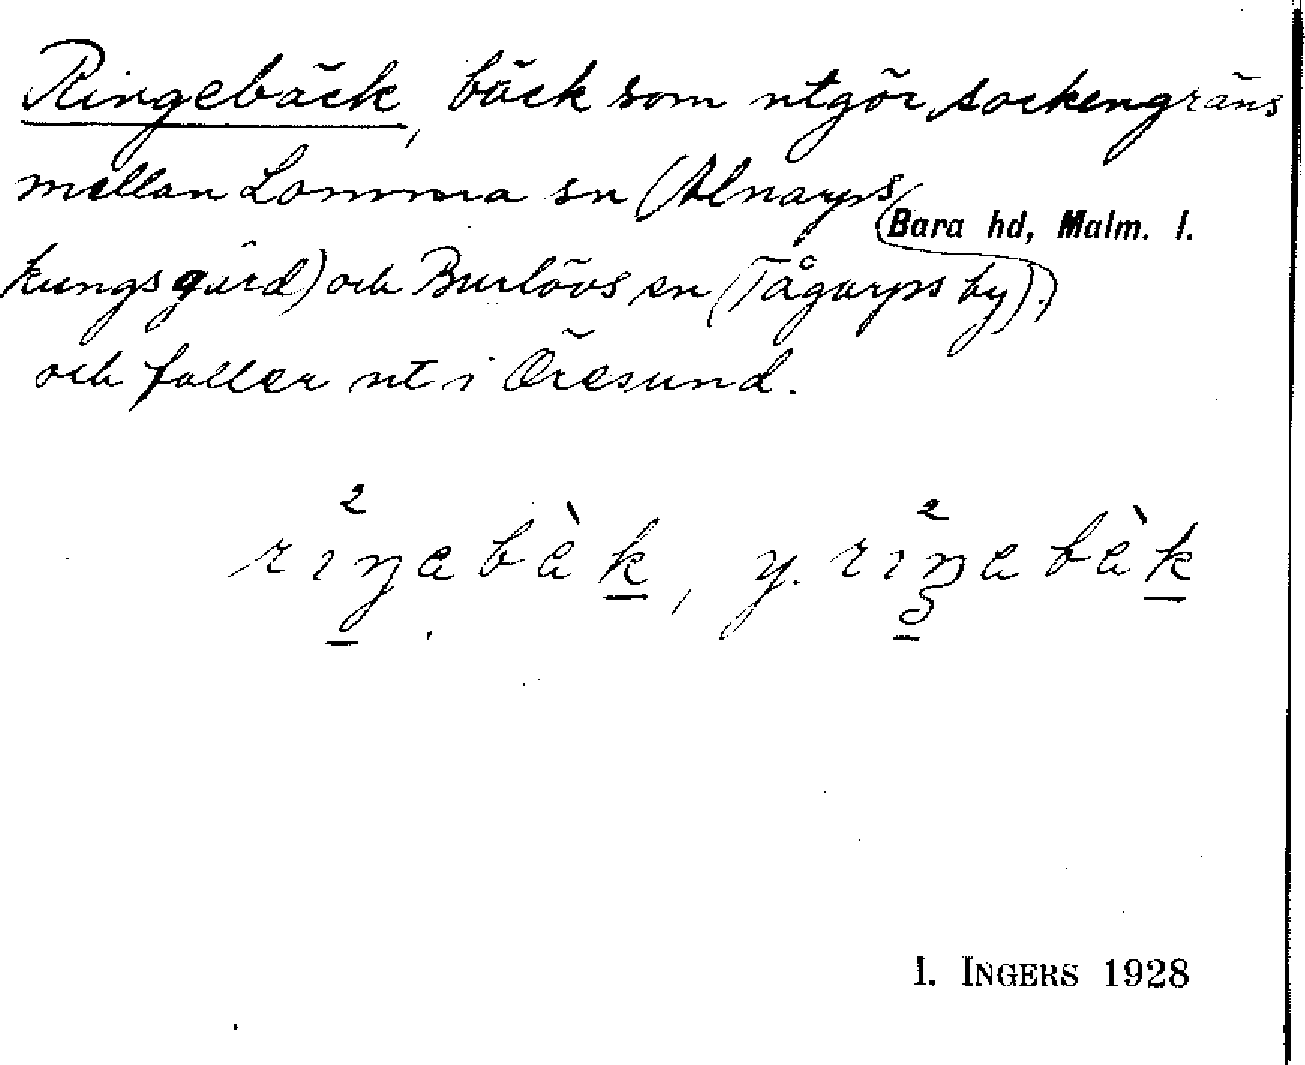 Ringebäck, bäck som utgör sockengräns
mellan Lomma sn (Alnarps
Bara hd, Malm. l.
kungsgård) och Burlövs sn (Tågarps by).
och faller ut i Öresund.
I. INGERS 1928